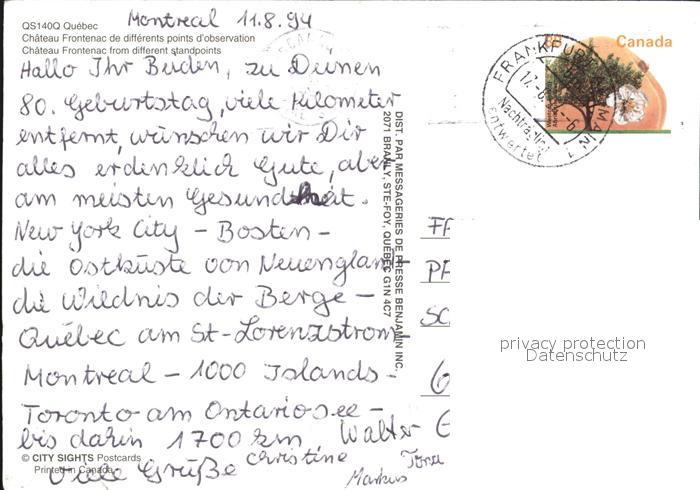 Montreal 11.8.94
QS140Q Québec
Château Frontenac de différents points d'observation
Château Frontenac from different standpoints
Hallo Ihr Beiden, zu Deinen
80. Geburtstag, viele Kilometer
entfernt, wünschen wir Dir
alles erdenklich Gute, aber
am meisten Gesundheit.
New York City - Bosten -
die Ostküste von Neuengland -
die Wildnis der Berge -
Québec am St-Lorenzstrom -
Montreal - 1000 Islands -
Toronto am Ontariosee -
bis dahin 1700 km
Viele Grüße Christine Walter
Markus
© CITY SIGHTS Postcards
Printed in Canada
DIST. PAR MESSAGERIES DE PRESSE BENJAMIN INC.
2071 BRANLY, STE-FOY, QUÉBEC G1N 4C7
88 Canada
FRANKFURT MAIN 1
Nachträglich
entwertet
privacy protection
Datenschutz